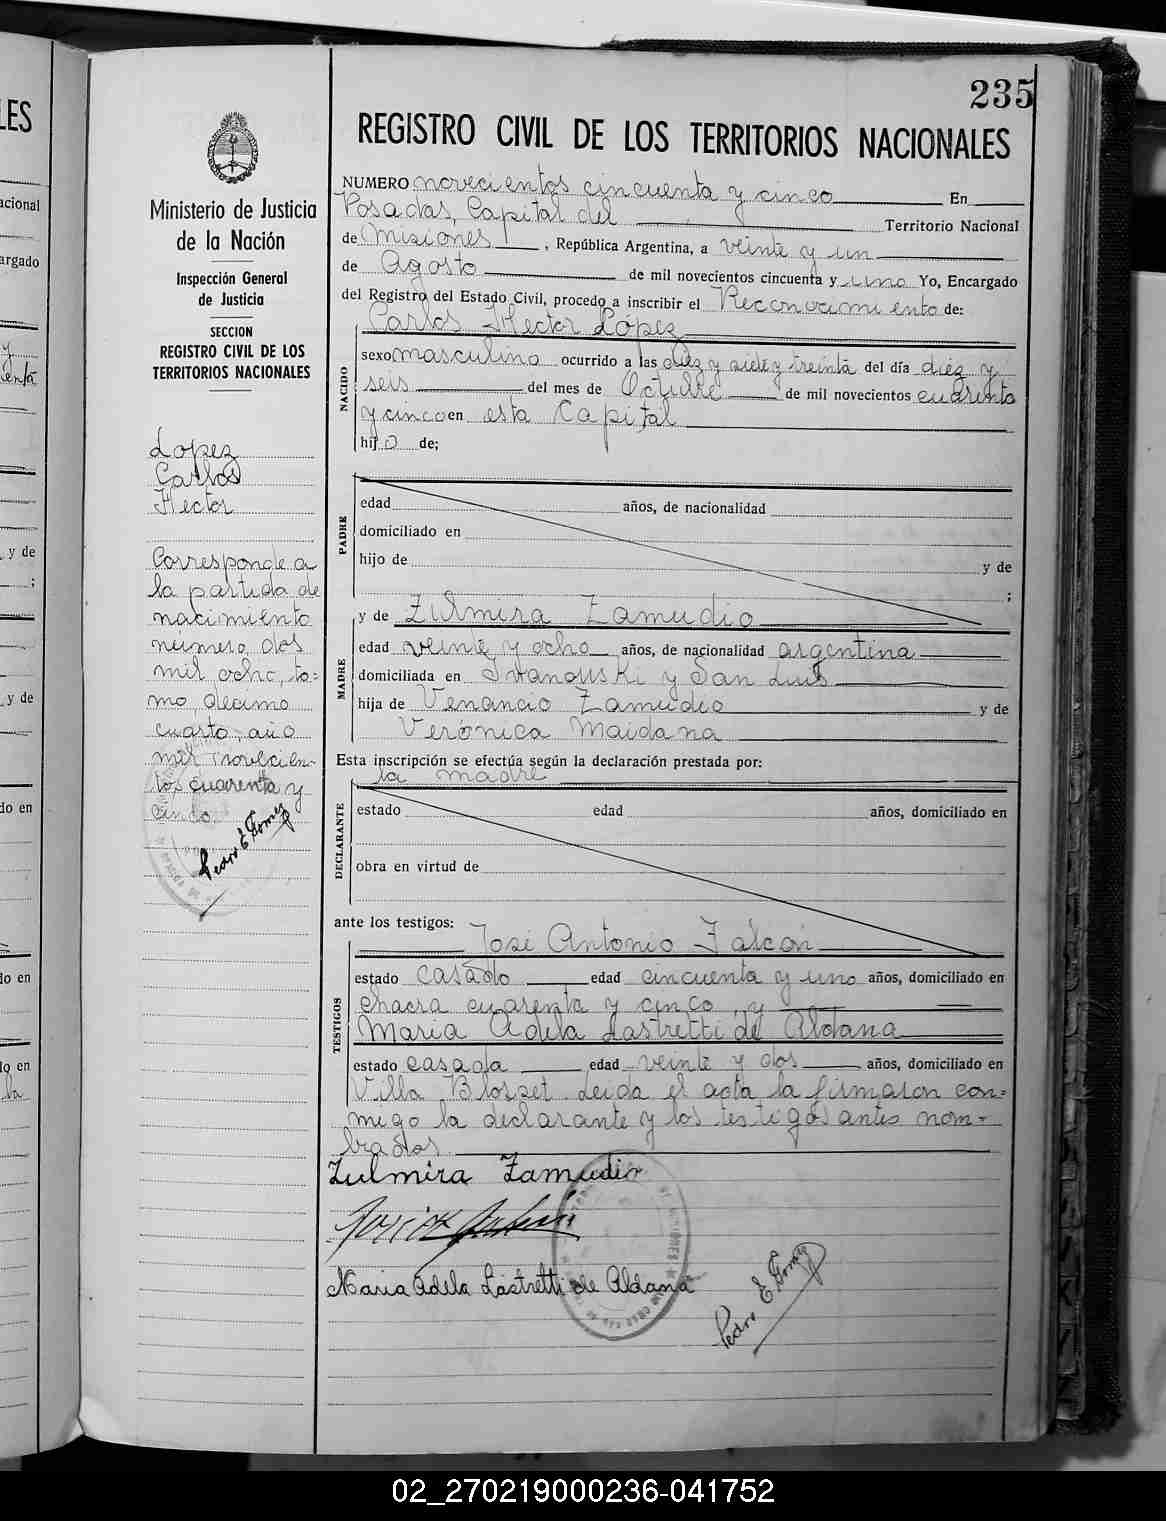 235
REGISTRO CIVIL DE LOS TERRITORIOS NACIONALES
NUMERO novecientos cincuenta y cinco En
Posadas, Capital del Territorio Nacional
de Misiones, República Argentina, a veinte y un
de Agosto de mil novecientos cincuenta y uno Yo, Encargado
del Registro del Estado Civil, procedo a inscribir el Reconocimiento de:
Carlos Hector López
NACIDO
sexo masculino ocurrido a las diez y siete y treinta del día diez y
seis del mes de Octubre de mil novecientos cuarenta
y cinco en esta Capital
hijo de;
PADRE
edad años, de nacionalidad
domiciliado en
hijo de y de
;
y de Zulmira Zamudio
MADRE
edad veinte y ocho años, de nacionalidad argentina
domiciliada en Ivanouski y San Luis
hija de Venancio Zamudio y de
Verónica Maidana
Esta inscripción se efectúa según la declaración prestada por:
la madre
DECLARANTE
estado edad años, domiciliado en
obra en virtud de
ante los testigos: José Antonio Falcón
TESTIGOS
estado casado edad cincuenta y uno años, domiciliado en
chacra cuarenta y cinco, y
María Adela Lastretti de Aldana
estado casada edad veinte y dos años, domiciliado en
Villa Blospet. Leida el acta la firmaron con=
migo la declarante y los testigos antes nom-
brados
Zulmira Zamudio
Maria Adela Lastretti de Aldana
Pedro E Gomez
Ministerio de Justicia
de la Nación
Inspección General
de Justicia
SECCION
REGISTRO CIVIL DE LOS
TERRITORIOS NACIONALES
Lopez
Carlos
Hector
Corresponde a
la partida de
nacimiento
número dos
mil ocho, to=
mo decimo
cuarto, año
mil novecien-
tos cuarenta y
cinco.
Pedro E Gomez
LES
acional
argado
y
enta
y de
;
y de
do en
do en
lo en
la
02_270219000236-041752